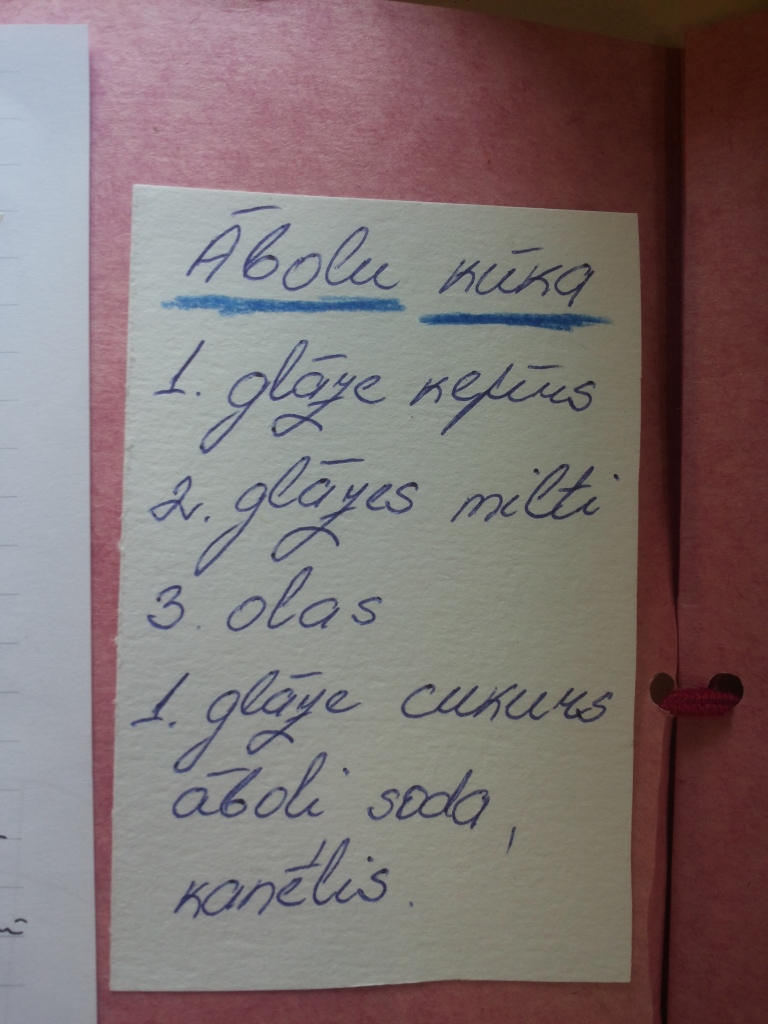 Ābolu kūka
1. glāze kefīrs
2. glāzes milti
3. olas
1. glāze cukurs
āboli soda,
kanēlis.